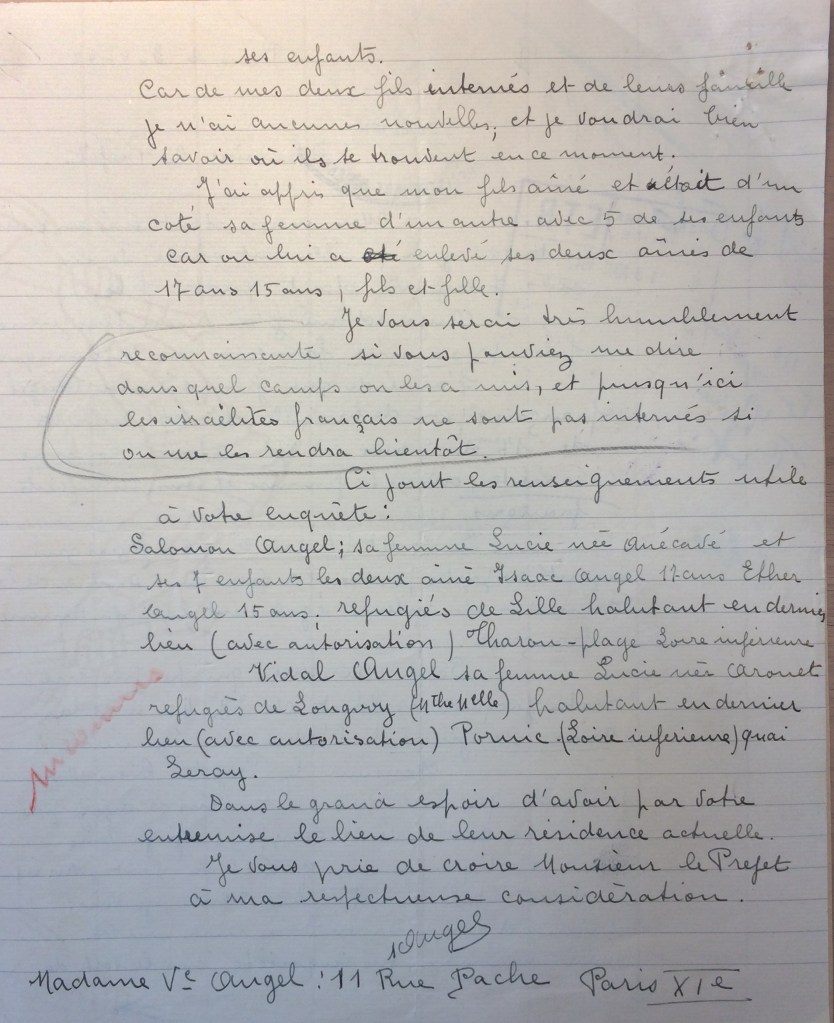 ses enfants.
Car de mes deux fils internés et de leurs famille
je n'ai aucunes nouvelles, et je voudrai bien
savoir où ils se trouvent en ce moment.
J'ai appris que mon fils aîné et était d'un
coté sa femme d'un autre avec 5 de ses enfants
car on lui a été enlevé ses deux aînés de
17 ans 15 ans, fils et fille.
Je vous serai très humblement
reconnaissante si vous pouviez me dire
dans quel camps on les a mis, et pusqu'ici
les israëlites français ne sont pas internés si
on me les rendra bientôt.
Ci joint les renseignements utile
à votre enquète :
Salomon Angel ; sa femme Lucie née Anécavé et
ses 7 enfants les deux ainé Isaac Angel 17 ans Ether
Angel 15 ans, refugiés de Lille habitant en dernier
lieu (avec autorisation) Tharon-plage Loire inférieure
Vidal Angel sa femme Lucie née Arouet
refugiès de Longwy (Mthe Mlle) habitant en dernier
lieu (avec autorisation) Pornic (Loire inférieure) quai
Leray.
Dans le grand espoir d'avoir par votre
entremise le lieu de leur résidence actuelle.
Je vous prie de croire Monsieur le Prefet
à ma respectueuse considération.
Angel
Madame Ve Angel : 11 Rue Pache Paris XIe